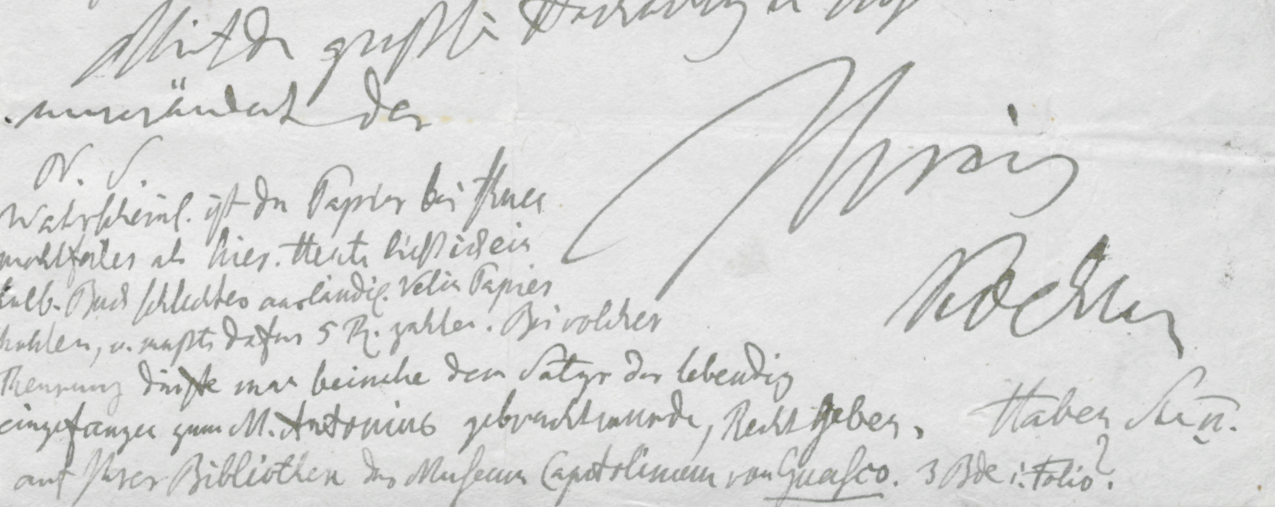 Mit der größten Hochachtung
unverändert der
Ihrig
N. S.
Wahrscheinl. ist das Papier bei Ihnen
wohlfeiler als hier. Heute ließ ich ein
halb. Buch schlechtes ausländisch. Velin Papier
hohlen, u. mußte dafür 5 R. zahlen. Bei solcher
Theurung dürfte man beinahe dem Satyr der lebendig
eingefangen zum M. Antonius gebracht wurde, Recht geben. Haben Sie n.
auf Ihrer Bibliothek das Museum Capitolinum von Guasco. 3 Bde i. Folio?